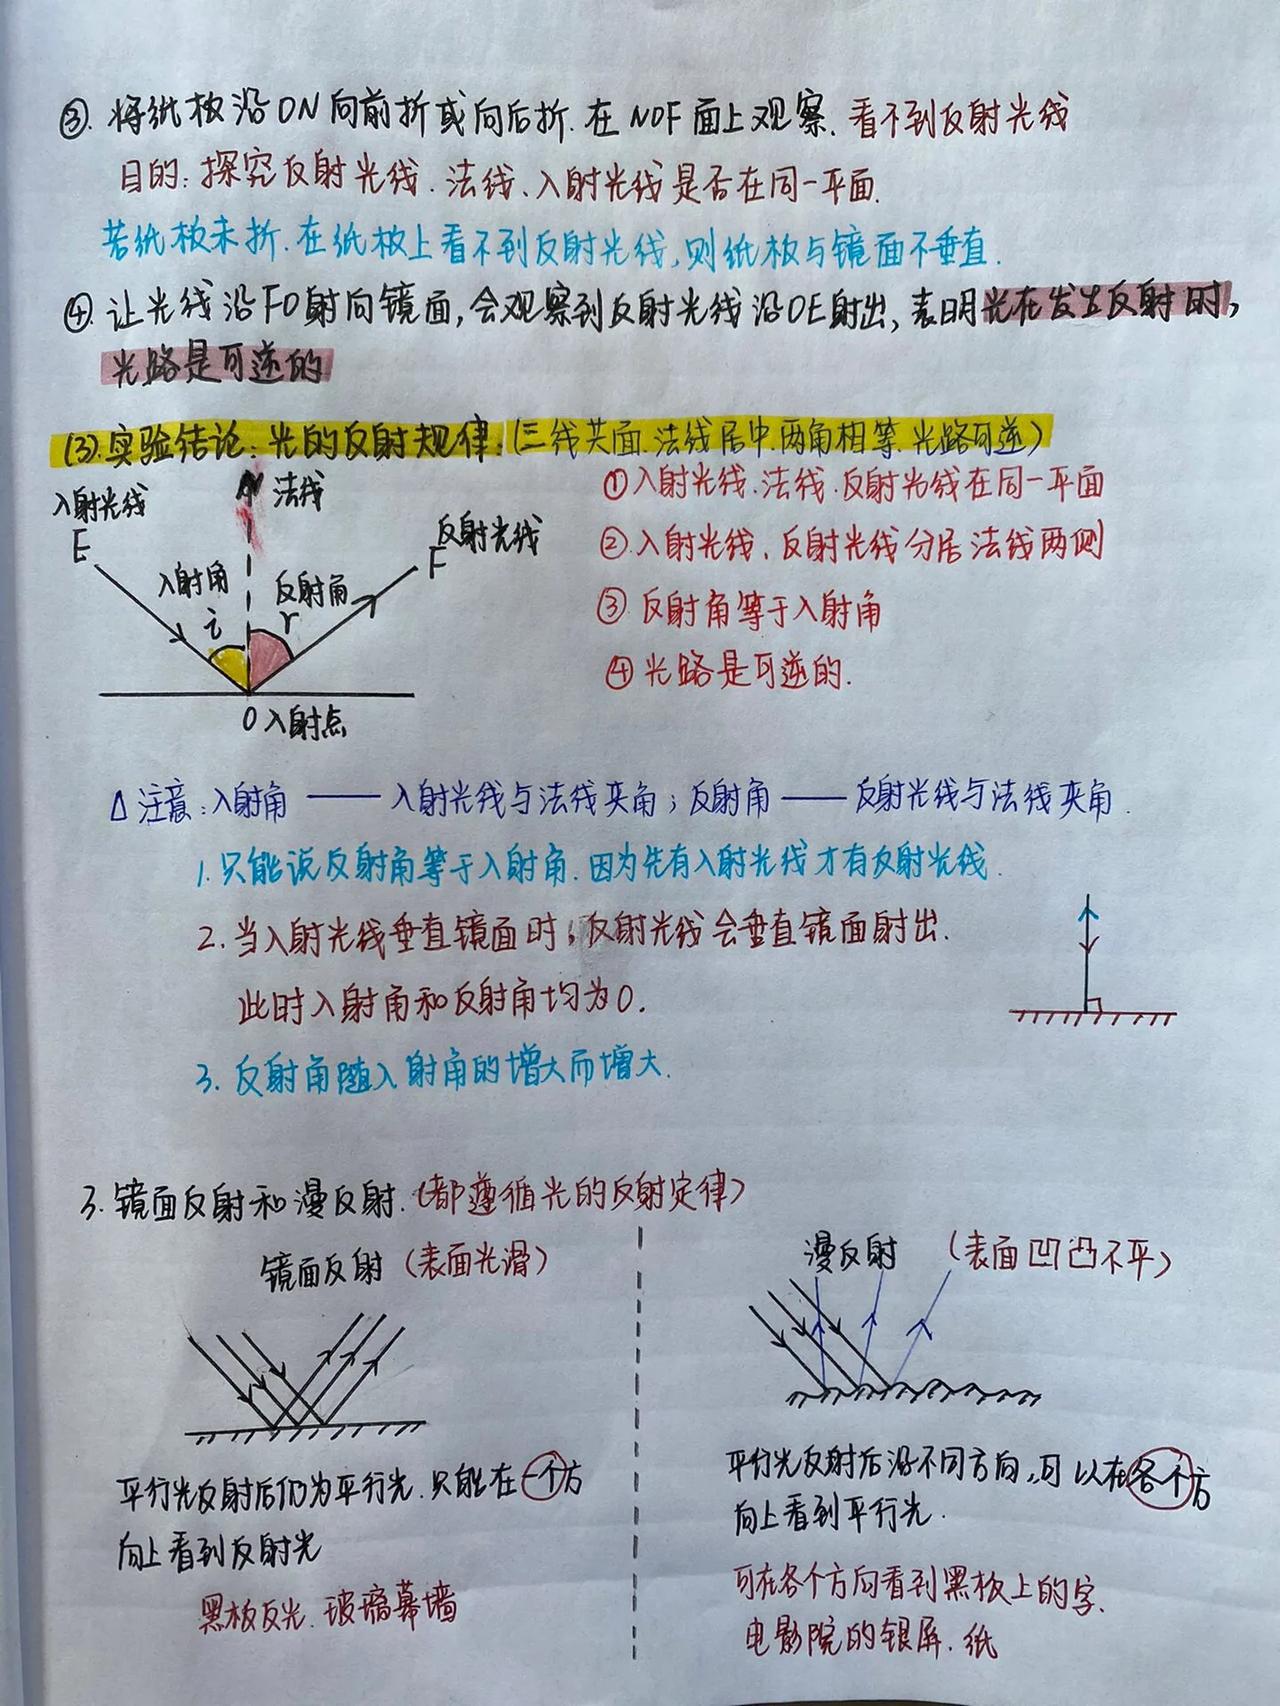 ③. 将纸板沿ON向前折或向后折.在NOF面上观察.看不到反射光线
目的:探究反射光线.法线、入射光线是否在同一平面.
若纸板未折.在纸板上看不到反射光线,则纸板与镜面不垂直.
④. 让光线沿FO射向镜面,会观察到反射光线沿OE射出,表明光在发生反射时,
光路是可逆的
(3).实验结论:光的反射规律.(三线共面.法线居中.两角相等.光路可逆)
入射光线
法线
反射光线
E
F
入射角
i
反射角
r
O入射点
①入射光线.法线.反射光线在同一平面
②.入射光线、反射光线分居法线两侧
③ 反射角等于入射角
④ 光路是可逆的.
△注意:入射角——入射光线与法线夹角;反射角——反射光线与法线夹角.
1.只能说反射角等于入射角.因为先有入射光线才有反射光线.
2.当入射光线垂直镜面时,反射光线会垂直镜面射出.
此时入射角和反射角均为0.
3.反射角随入射角的增大而增大.
3.镜面反射和漫反射.(都遵循光的反射定律)
镜面反射(表面光滑)
平行光反射后仍为平行光.只能在一个方
向上看到反射光
黑板反光.玻璃幕墙
漫反射 (表面凹凸不平)
平行光反射后沿不同方向,可以在各个方
向上看到平行光.
可在各个方向看到黑板上的字.
电影院的银屏.纸